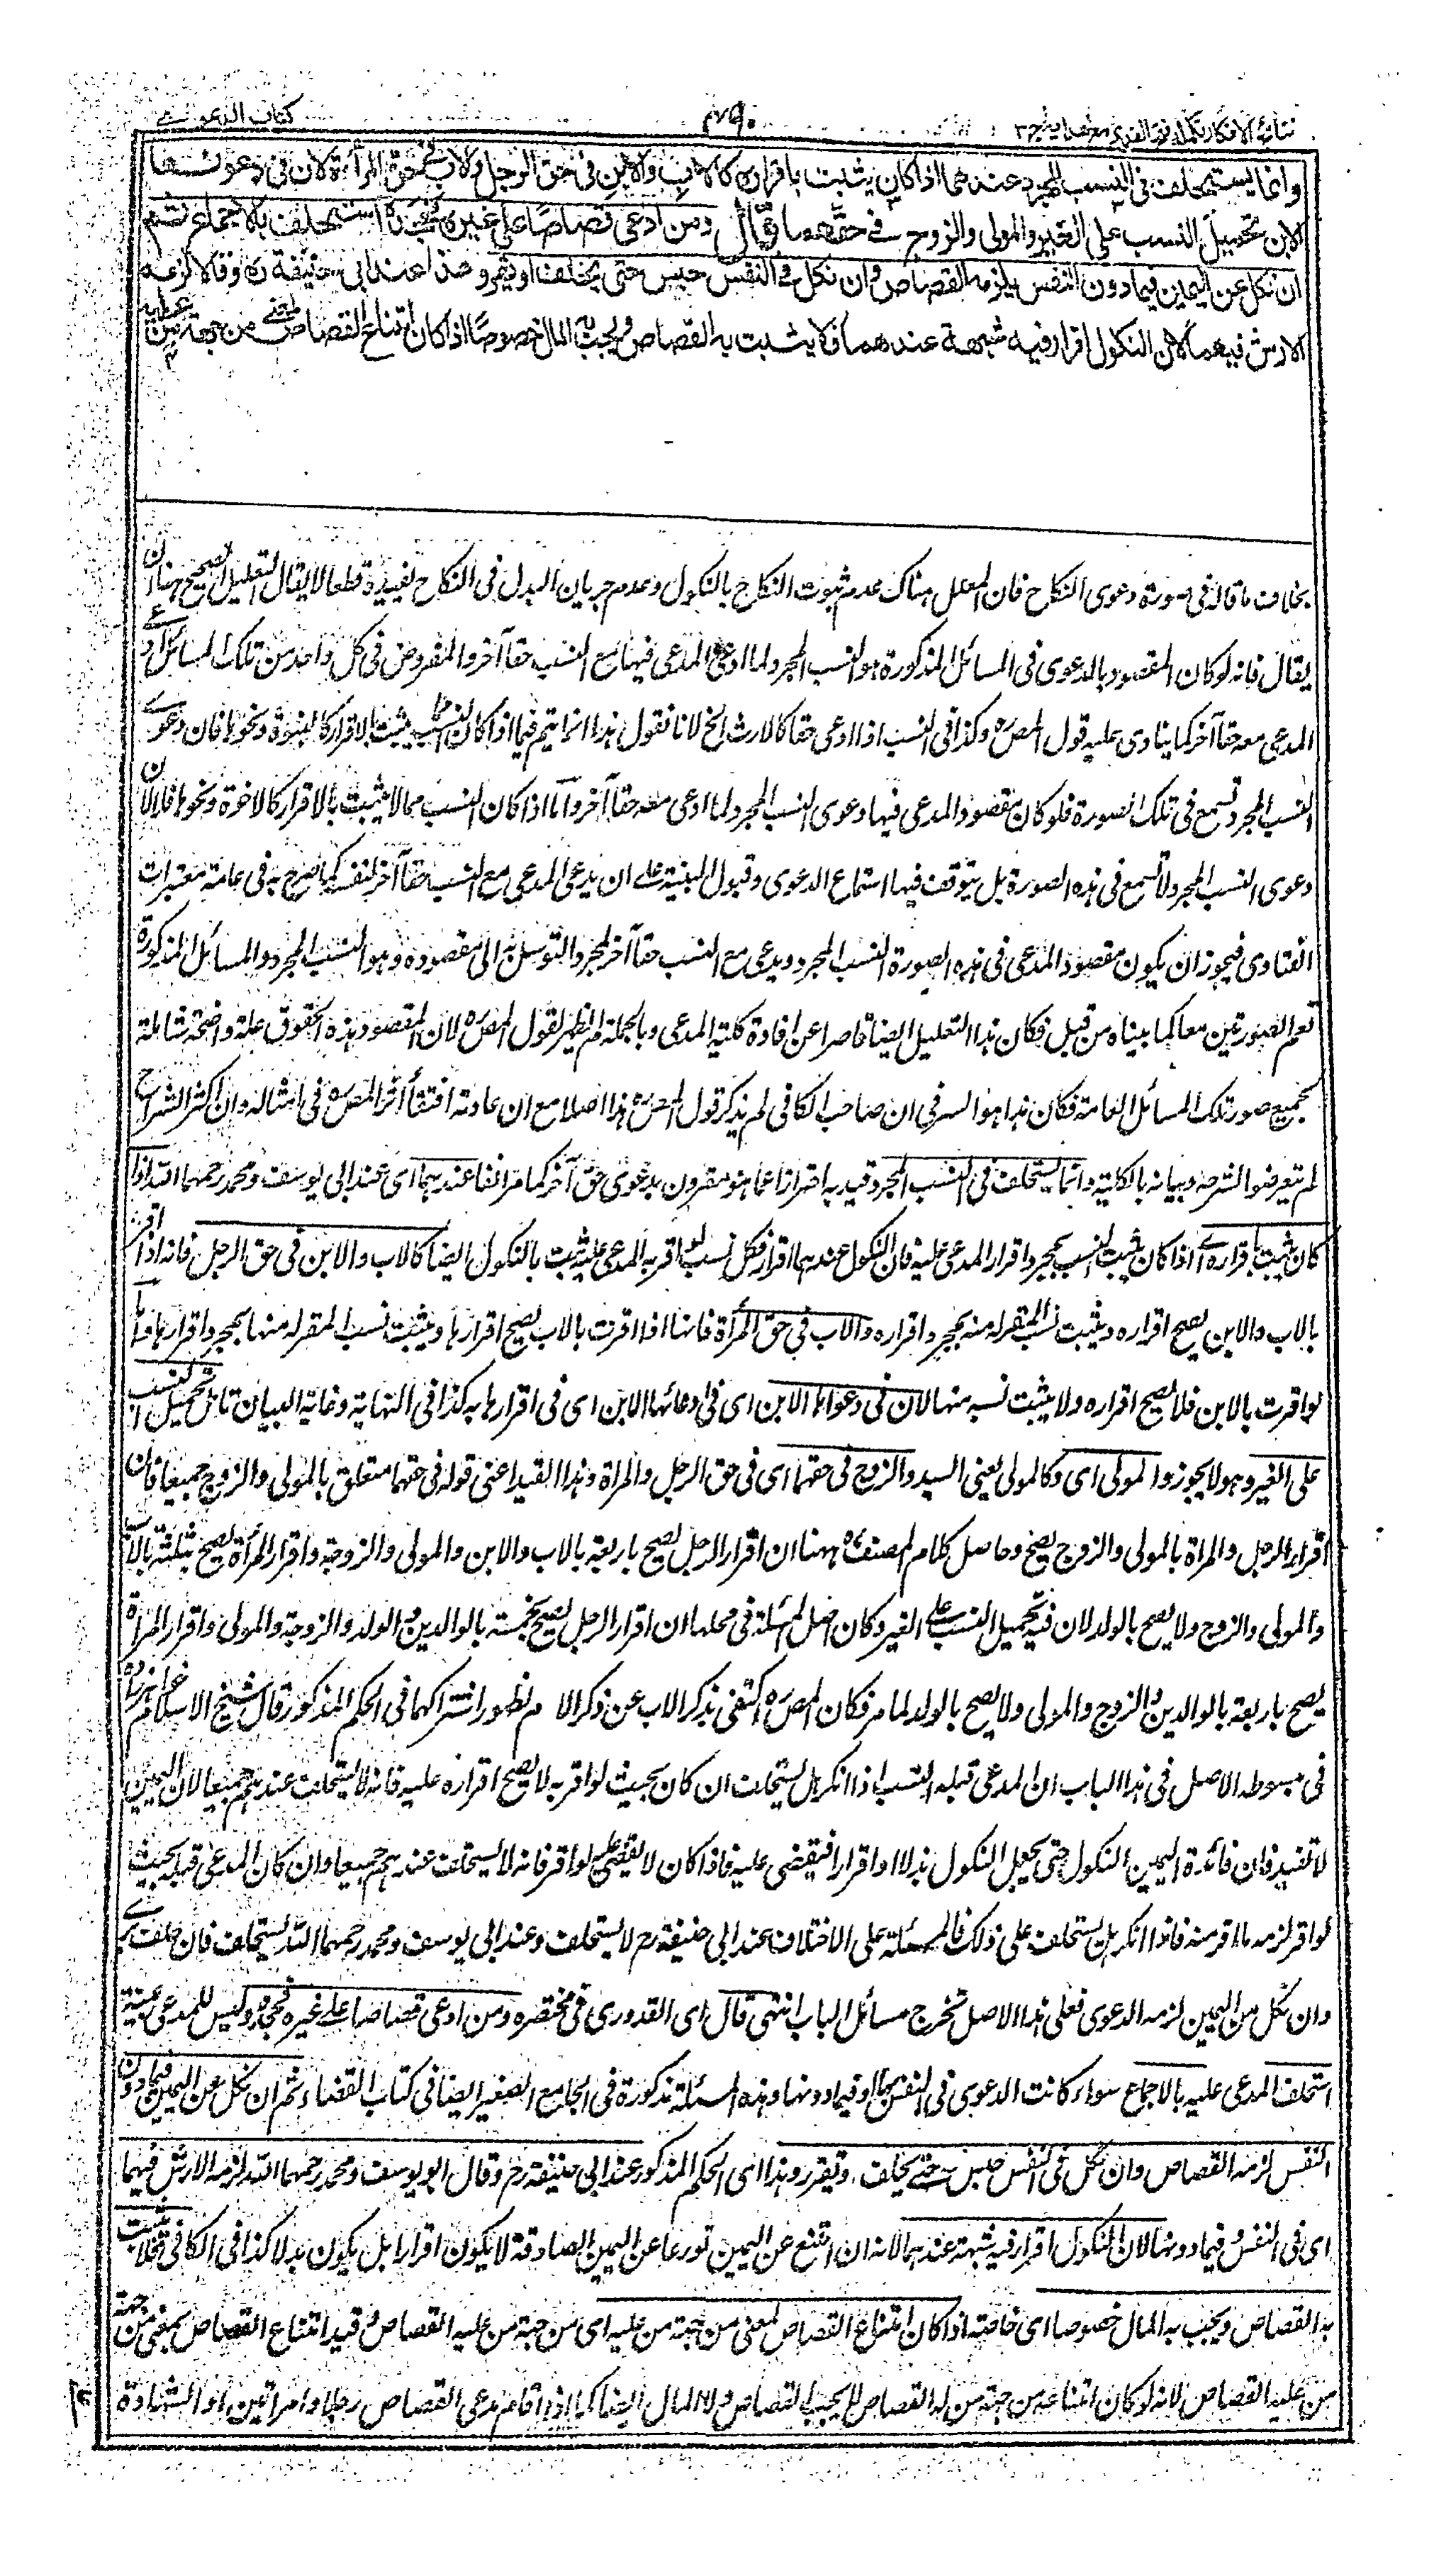 نتائج الافكار تكملة فتح القدير مع هدايه ج ٣
٤٩٠
كتاب الدعوى
وانما يستحلف فى النسب المجرد عندهما اذا كان يثبت باقراره كالاب والابن فى حق الرجل والاب فى حق المرأة لان فى دعوىها
الابن تحميل النسب على الغير والمولى والزوج فى حقهما قال ومن ادعى قصاصا على غيره فجحده استحلف بالاجماع ثم
ان نكل عن اليمين فيما دون النفس يلزمه القصاص وان نكل فى النفس حبس حتى يحلف او يقر وهذا عند ابى حنيفة ره وقالا لزمه
الارش فيهما لان النكول اقرار فيه شبهة عندهما فلا يثبت به القصاص ويجب به المال خصوصا اذا كان امتناع القصاص لمعنى من جهة من عليه
بخلاف ما قاله فى صورة دعوى النكاح فان المعلل هناك عدم ثبوت النكاح بالنكول وعدم جريان البدل فى النكاح يفيده قطعا لا يقال التعليل الصحيح ههنا ان
يقال فانه لو كان المقصود بالدعوى فى المسائل المذكورة هو النسب المجرد لما ادعى المدعى فيها مع النسب حقا آخر والمفروض فى كل واحد من تلك المسائل ادعى
المدعى معه حقا آخر كما ينادى عليه قول المص ره وكذا فى النسب اذا ادعى حقا كالارث الخ لانا نقول هذا انما يتم فيما اذا كان النسب مما يثبت بالاقرار كالبنوة ونحوها فان دعوى
النسب المجرد تسمع فى تلك الصورة فلو كان مقصود المدعى فيها دعوى النسب المجرد لما ادعى معه حقا آخر واما اذا كان النسب مما لا يثبت بالاقرار كالاخوة ونحوها فلا لان
دعوى النسب المجرد لا تسمع فى هذه الصورة بل يتوقف فيها استماع الدعوى وقبول البينة على ان يدعى المدعى مع النسب حقا آخر لنفسه كما صرح به فى عامة معتبرات
الفتاوى فيجوز ان يكون مقصود المدعى فى هذه الصورة النسب المجرد ويدعى مع النسب حقا آخر لمجرد التوسل به الى مقصوده وهو النسب المجرد والمسائل المذكورة
تعم الصورتين معا كما بيناه من قبل فكان هذا التعليل ايضا قاصرا عن افادة كلية المدعى وبالجملة لم يظهر لقول المص ره لان المقصود هذه الحقوق علة واضحة شاملة
لجميع صور تلك المسائل العامة فكان هذا هو السر فى ان صاحب الكافى لم يذكر قول المص ره هذا اصلا مع ان عادته اقتفأ اثر المص ره فى امثاله وان اكثر الشراح
لم يتعرضوا لشرحه وبيانه بالكلية وانما يستحلف فى النسب المجرد قيد به احترازا عما هو مقرون بدعوى حق آخر كما مر انفا عندهما اى عند ابى يوسف ومحمد رحمهما الله اذا
كان يثبت باقراره اى اذا كان يثبت النسب بمجرد اقرار المدعى عليه فان النكول عندهما اقرار فكل نسب لو اقر به المدعى عليه يثبت بالنكول ايضا كالاب والابن فى حق الرجل فانه اذا اقر
بالاب والابن يصح اقراره ويثبت نسب المقر له منه بمجرد اقراره والاب فى حق المرأة فانها اذا اقرت بالاب يصح اقرارها ويثبت نسب المقر له منها بمجرد اقرارها واما
لو اقرت بالابن فلا يصح اقراره ولا يثبت نسبه منها لان فى دعواها الابن اى فى ادعائها الابن اى فى اقرارها به كذا فى النهاية وغاية البيان تامل تحميل النسب
على الغير وهو لا يجوز والمولى اى وكالمولى يعنى السيد والزوج فى حقهما اى فى حق الرجل والمراة وهذا القيد اعنى قوله فى حقهما متعلق بالمولى والزوج جميعا فان
اقرار الرجل والمراة بالمولى والزوج يصح وحاصل كلام المصنف ره ههنا ان اقرار الرجل يصح باربعة بالاب والابن والمولى والزوجة واقرار المرأة يصح بثلثة بالاب
والمولى والزوج ولا يصح بالولد لان فيه تحميل النسب على الغير وكان اصل المسئلة فى محلها ان اقرار الرجل يصح بخمسة بالوالدين والولد والزوجة والمولى واقرار المرأة
يصح باربعة بالوالدين والزوج والمولى ولا يصح بالولد لما مر فكان المص ره اكتفى بذكر الاب عن ذكر الام لظهور اشتراكهما فى الحكم المذكور قال شيخ الاسلام خواهر زاده
فى مبسوطه الاصل فى هذا الباب ان المدعى قبله النسب اذا انكر هل يستحلف ان كان بحيث لو اقر به لا يصح اقراره عليه فانه لا يستحلف عندهم جميعا لان اليمين
لا تفيد فان فائدة اليمين النكول حتى يجعل النكول بذلا او اقرارا فيقضى عليه فاذا كان لا يقضى عليه لو اقر فانه لا يستحلف عندهم جميعا وان كان المدعى قبله بحيث
لو اقر لزمه ما اقر منه فاذا انكر هل يستحلف على ذلك فالمسئلة على الاختلاف عند ابى حنيفة رح لا يستحلف وعند ابى يوسف ومحمد رحمهما الله يستحلف فان حلف برئ
وان نكل من اليمين لزمه الدعوى فعلى هذا الاصل تخرج مسائل الباب انتهى قال اى القدورى فى مختصره ومن ادعى قصاصا على غيره فجحده وليس للمدعى بينة
استحلف المدعى عليه بالاجماع سواء كانت الدعوى فى النفس او فيما دونها وهذه المسئلة مذكورة فى الجامع الصغير ايضا فى كتاب القضاء ثم ان نكل عن اليمين فيما دون
النفس لزمه القصاص وان نكل فى النفس حبس حتى يحلف او يقر وهذا اى الحكم المذكور عند ابى حنيفة رح وقال ابو يوسف ومحمد رحمهما الله لزمه الارش فيهما
اى فى النفس وفيما دونها لان النكول اقرار فيه شبهة عندهما لانه ان امتنع عن اليمين تورعا عن اليمين الصادقة لا يكون اقرارا بل يكون بذلا كذا فى الكافى فلا يثبت
به القصاص ويجب به المال خصوصا اى خاصة اذا كان امتناع القصاص لمعنى من جهة من عليه اى من جهة من عليه القصاص وقيد امتناع القصاص بمعنى من جهة
من عليه القصاص لانه لو كان امتناعه من جهة من له القصاص لا يجب القصاص ولا المال ايضا كما اذا اقام مدعى القصاص رجلا وامراتين او الشهادة